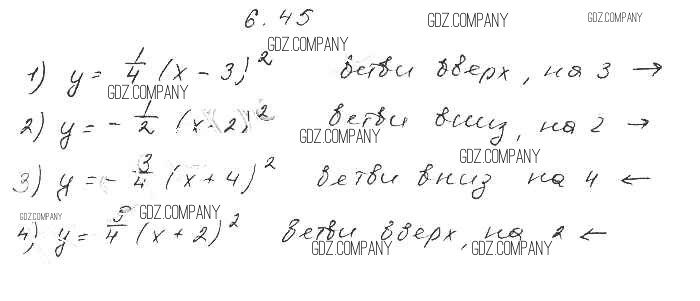 6.45
GDZ.COMPANY GDZ.COMPANY
GDZ.COMPANY
1) y = 1/4 (x - 3)² ветви вверх, на 3 →
GDZ.COMPANY
2) y = - 1/2 (x - 2)² ветви вниз, на 2 →
GDZ.COMPANY
GDZ.COMPANY
3) y = - 3/4 (x + 4)² ветви вниз на 4 ←
GDZ.COMPANY GDZ.COMPANY
4) y = 5/4 (x + 2)² ветви вверх, на 2 ←
GDZ.COMPANY GDZ.COMPANY